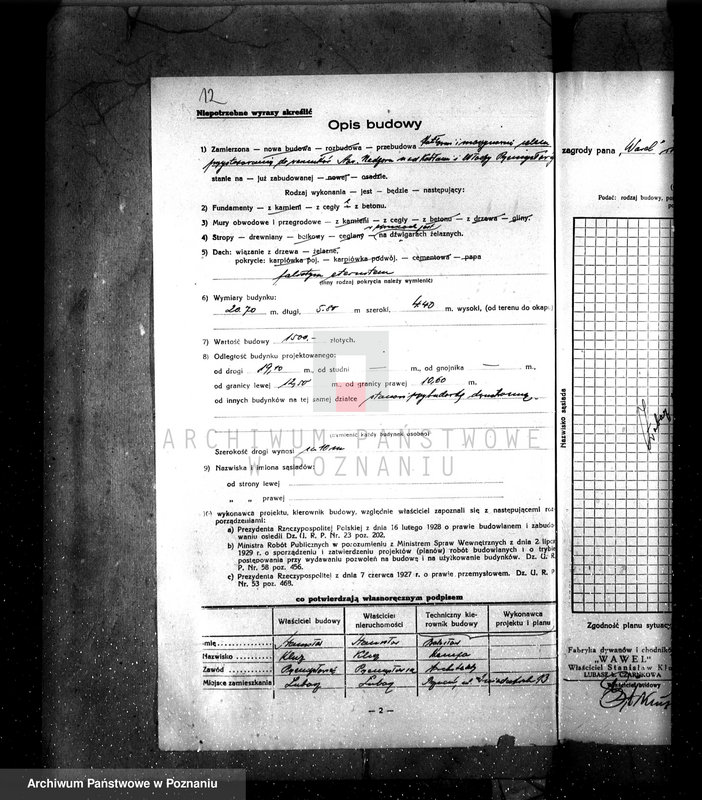 12
Niepotrzebne wyrazy skreślić
Opis budowy
1) Zamierzona — nowa budowa — rozbudowa — przebudowa
stanie na — już zabudowanej — nowej — osadzie.
Rodzaj wykonania — jest — będzie — następujący:
2) Fundamenty — z kamieni — z cegły — z betonu.
3) Mury obwodowe i przegrodowe — z kamieni — z cegły — z betonu — z drzewa — gliny.
4) Stropy — drewniany — belkowy — ceglany — na dźwigarach żelaznych.
5) Dach: wiązanie z drzewa — żelazne,
pokrycie: karpiówka poj. — karpiówka podwój. — cementowa — papa
falistym eternitem
(inny rodzaj pokrycia należy wymienić)
6) Wymiary budynku:
20.70 m. długi, 5.80 m szeroki, 4.40 m. wysoki, (od terenu do okapu
7) Wartość budowy 1500,— złotych.
8) Odległość budynku projektowanego:
od drogi 19,10 m., od studni — m., od gnojnika — m.,
od granicy lewej 12,10 m., od granicy prawej 10,60 m.
od innych budynków na tej samej działce
(wymienić każdy budynek osobno)
Szerokość drogi wynosi ca 10 m
9) Nazwiska i imiona sąsiadów:
od strony lewej
„ „ prawej
wykonawca projektu, kierownik budowy, względnie właściciel zapoznali się z następującemi roz-
porządzeniami:
a) Prezydenta Rzeczypospolitej Polskiej z dnia 16 lutego 1928 o prawie budowlanem i zabudo-
waniu osiedli Dz. U. R. P. Nr. 23 poz. 202,
b) Ministra Robót Publicznych w porozumieniu z Ministrem Spraw Wewnętrznych z dnia 2. lipca
1929 r. o sporządzeniu i zatwierdzeniu projektów (planów) robót budowlanych i o trybie
postępowania przy wydawaniu pozwoleń na budowę i na użytkowanie budynków. Dz. U. R.
P. Nr. 58 poz. 456.
c) Prezydenta Rzeczypospolitej z dnia 7 czerwca 1927 o prawie przemysłowem. Dz. U. R. P
Nr. 53 poz. 468.
co potwierdzają własnoręcznym podpisem
Właściciel budowy Właściciel nieruchomości Techniczny kierownik budowy Wykonawca projektu i planu
Imię Stanisław Stanisław
Nazwisko Kluj Kluj
Zawód Przemysłowiec Przemysłowiec Architekt
Miejsce zamieszkania Lubasz Lubasz
— 2 —
zagrody pana „Wawel”
Podać: rodzaj budowy, po
Nazwisko sąsiada
Zgodność planu sytuac
Fabryka dywanów i chodnikó
„WAWEL”
Właściciel Stanisław Kl
LUBASZ k. CZARNKOWA
Właściciel budowy
ARCHIWUM PAŃSTWOWE
W POZNANIU
Archiwum Państwowe w Poznaniu